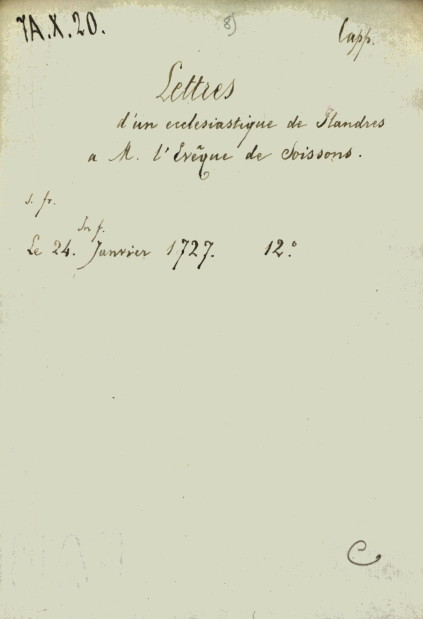 7A.X.20.
8)
Capp.
Lettres
d'un ecclesiastique de Flandres
a M. l'Evêque de Soissons.
s. fr.
In f.
Le 24. Janvier 1727. 12°
C